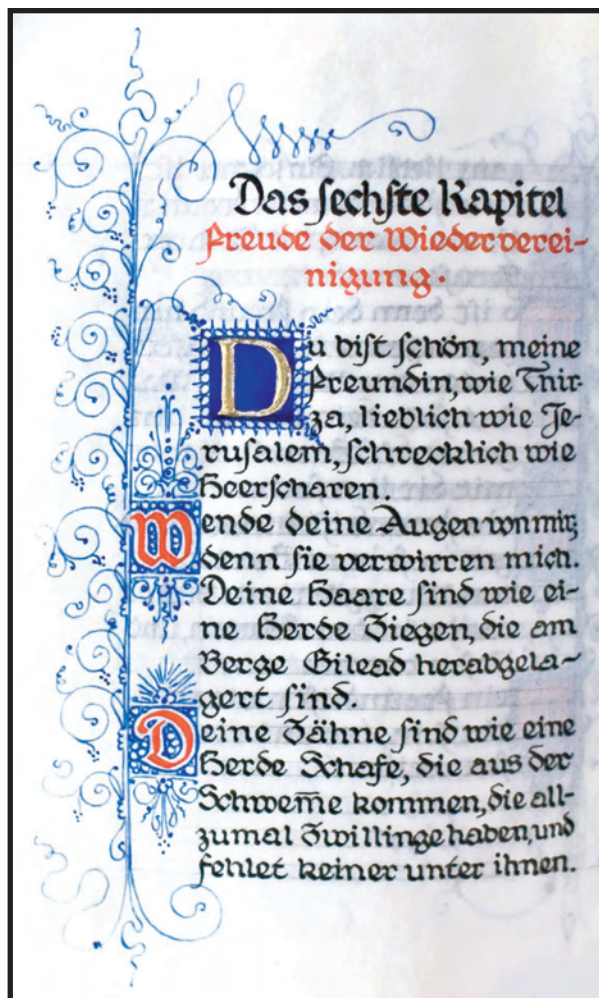 Das sechste Kapitel
Freude der Wiederverei-
nigung.
Du bist schön, meine
Freundin, wie Thir-
za, lieblich wie Je-
rusalem, schrecklich wie
Heerscharen.
Wende deine Augen von mir;
denn sie verwirren mich.
Deine Haare sind wie ei-
ne Herde Ziegen, die am
Berge Gilead herabgela-
gert sind.
Deine Zähne sind wie eine
Herde Schafe, die aus der
Schwem̅e kommen, die all-
zumal Zwillinge haben, und
fehlet keiner unter ihnen.